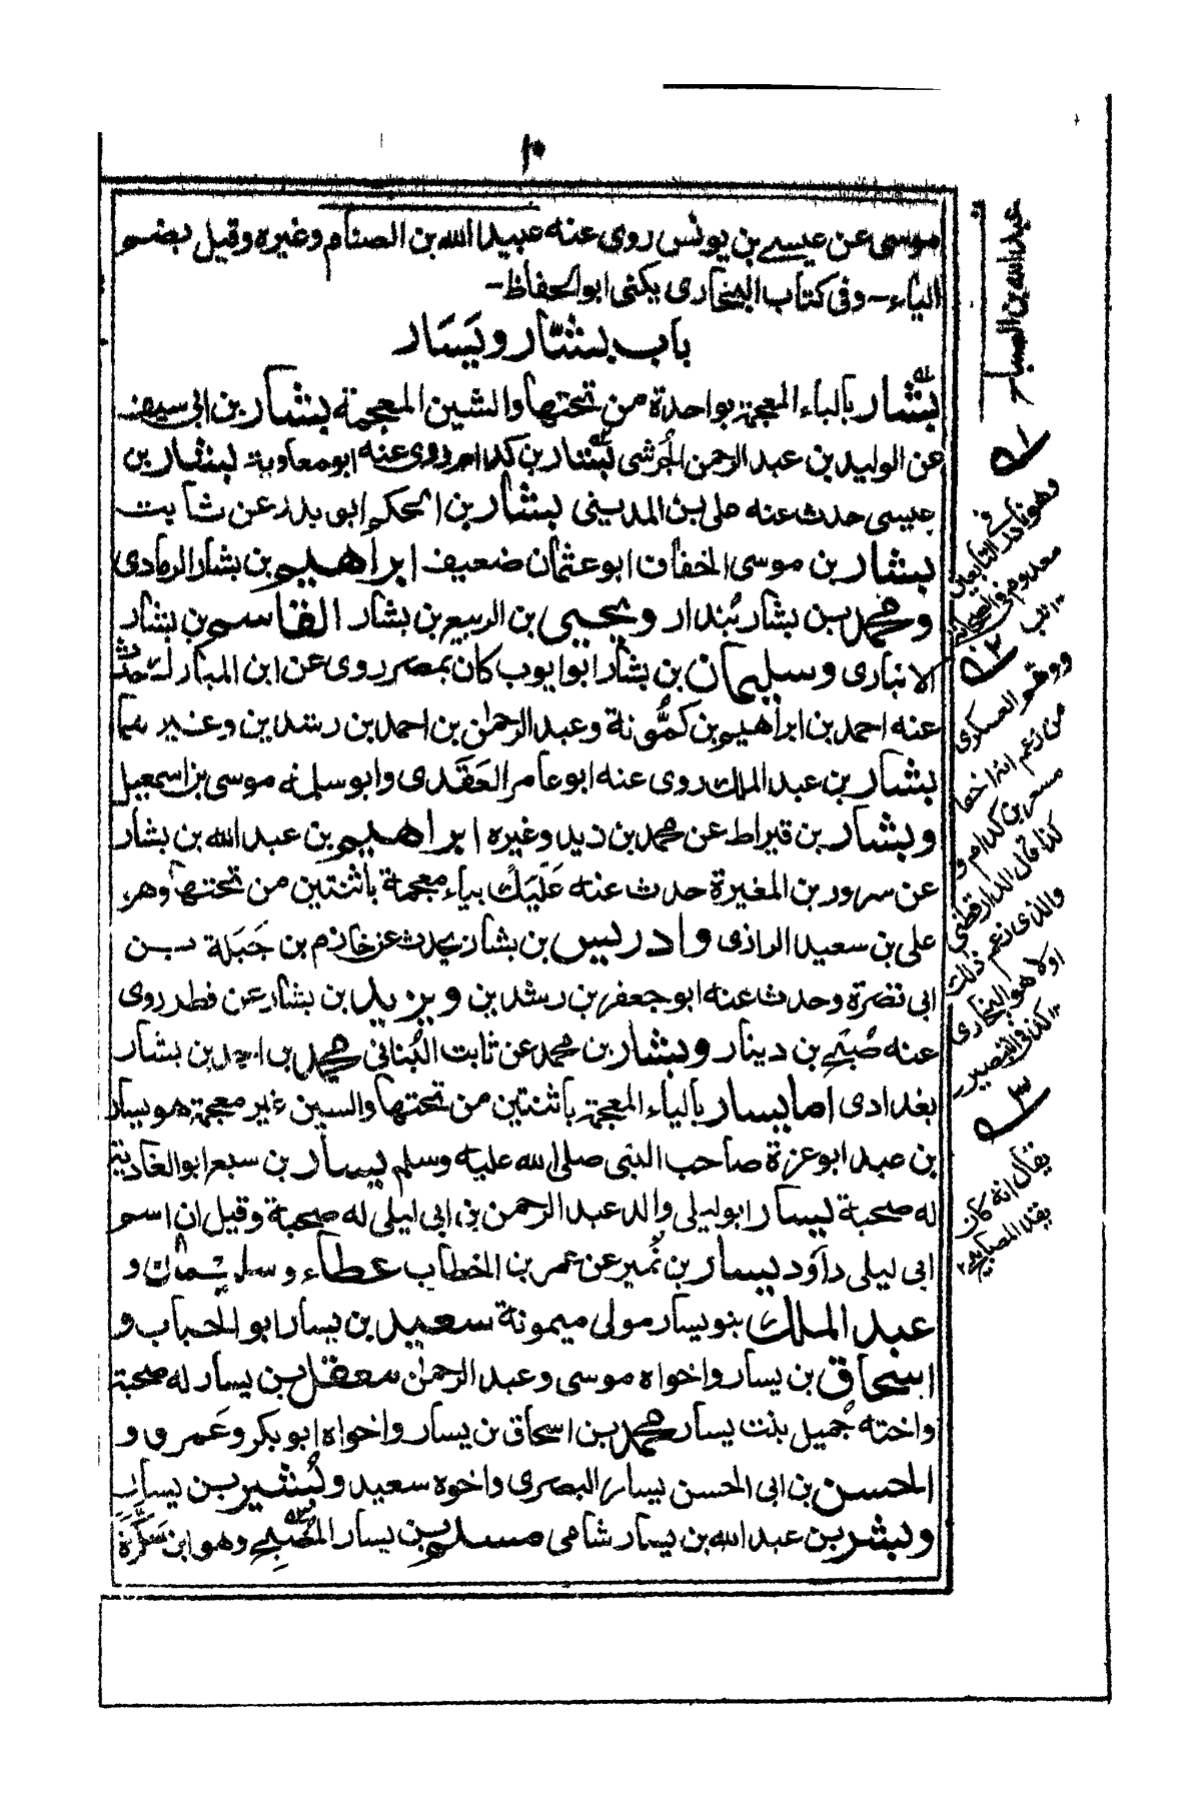 ١٠
موسى عن عيسے بن يونس روى عنه عبيد الله بن الصنام وغيره وقيل بضم
الياء - وفى كتاب البخارى يكنى ابو الحفاظ -
باب بشّار ويَسَار
بشّار بالباء المعجمة بواحدة من تحتها والشين المعجمة بشار بن ابى سيف
عن الوليد بن عبد الرحمن الجُرشى بشار بن كدام روى عنه ابو معاوية بشار بن
عيسى حدث عنه على بن المدينى بشار بن الحكم ابو بدر عن ثابت
بشار بن موسى الخفاف ابو عثمان ضعيف ابراهيم بن بشار الرمادى
ومحمد بن بشار بُندار ويحيى بن الربيع بن بشار القاسم بن بشار
الانبارى وسليمان بن بشار ابو ايوب كان بمصر روى عن ابن المبارك حدث
عنه احمد بن ابراهيم بن كمُّونة وعبد الرحمٰن بن احمد بن رشدين وغيرهما
بشار بن عبد الملك روى عنه ابو عامر العَقَدى وابو سلمه موسى بن اسمعيل
وبشار بن قيراط عن محمد بن زيد وغيره ابراهيم بن عبد الله بن بشار
عن سرور بن المغيرة حدث عنه عَلِيَّك بياء معجمة باثنتين من تحتها وهو
على بن سعيد الرازى وادريس بن بشار يحدث عن خازم بن جَبَلة بن
ابى نضرة وحدث عنه ابو جعفر بن رشد بن ويزيد بن بشار عن فطر روى
عنه صُبَيح بن دينار وبشار بن محمد عن ثابت البُنانى محمد بن احمد بن بشار
بغدادى اما يسار بالياء المعجمة باثنتين من تحتها والسين غير معجمة هو يسار
بن عبد ابو عزة صاحب النبى صلى الله عليه وسلم يسار بن سبع ابو الغادية
له صحبة يسار ابو ليلى والد عبد الرحمن بن ابى ليلى له صحبة وقيل ان اسم
ابى ليلى داؤد يسار بن نُمير عن عمر بن الخطاب عطاء وسليمان و
عبد الملك بنو يسار مولى ميمونة سعيد بن يسار ابو الحباب و
اسحاق بن يسار واخواه موسى وعبد الرحمٰن معقل بن يسار له صحبة
واخته جُميل بنت يسار محمد بن اسحاق بن يسار واخواه ابو بكر وعمر و
الحسن بن ابى الحسن يسار البصرى واخوه سعيد وبُشير بن يسار
وبشر بن عبد الله بن يسار شامى مسلم بن يسار المُصبح وهو ابن سَكَّرة
عبد الله بن الصباح
١
وهو نادر فى التابعين
معدوم فى الصحابة
١٢ تب
٢
ووهم العسكرى
من زعم انه اخو
مسعر بن كدام و
كذا قال الدارقطنى
والذى زعم ذلك
اولا هو البخارى
كذا فى التبصير
٣
يقال انه كان